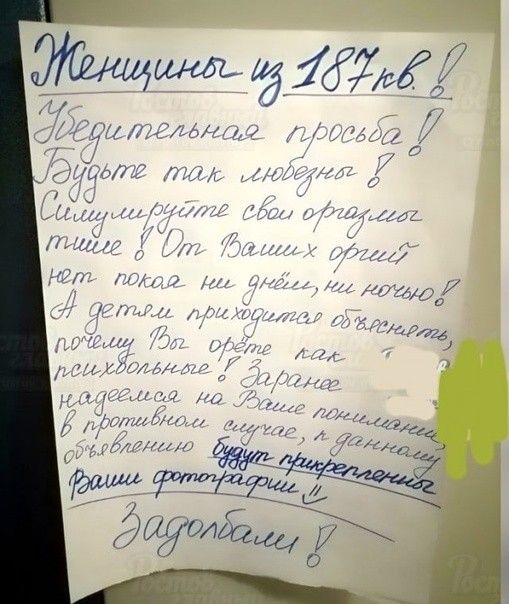 Женщины из 187кв.!
Убедительная просьба!
Будьте так любезны!
Симулируйте свои оргазмы
тише! От Ваших оргий
нет покоя ни днём, ни ночью!
А детям приходится объяснять,
почему Вы орёте как
психбольные! Заранее
надеемся на Ваше понимание,
в противном случае, к данному
объявлению будут прикрепленны
Ваши фотографии!!
Задолбали!